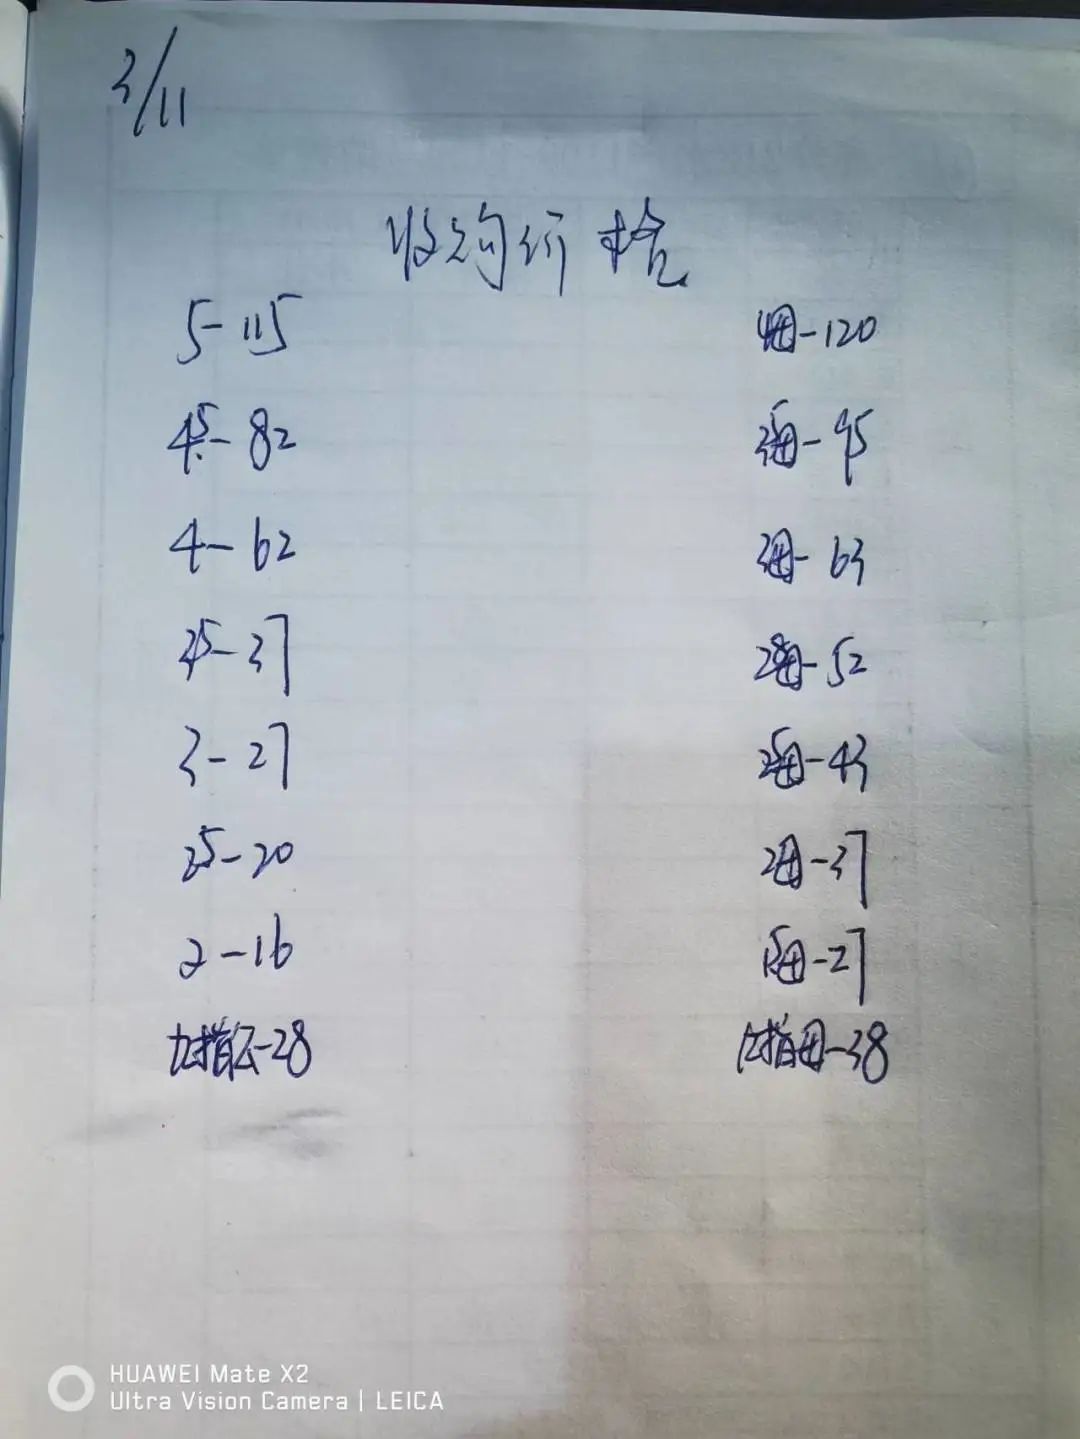 3/11
收购价格
5-115 4母-120
4.5-82 3.5母-95
4-62 3母-63
3.5-37 2.8母-52
3-27 2.5母-43
2.5-20 2母-37
2-16 1.5母-27
断指公-28 断指母-38
HUAWEI Mate X2
Ultra Vision Camera | LEICA